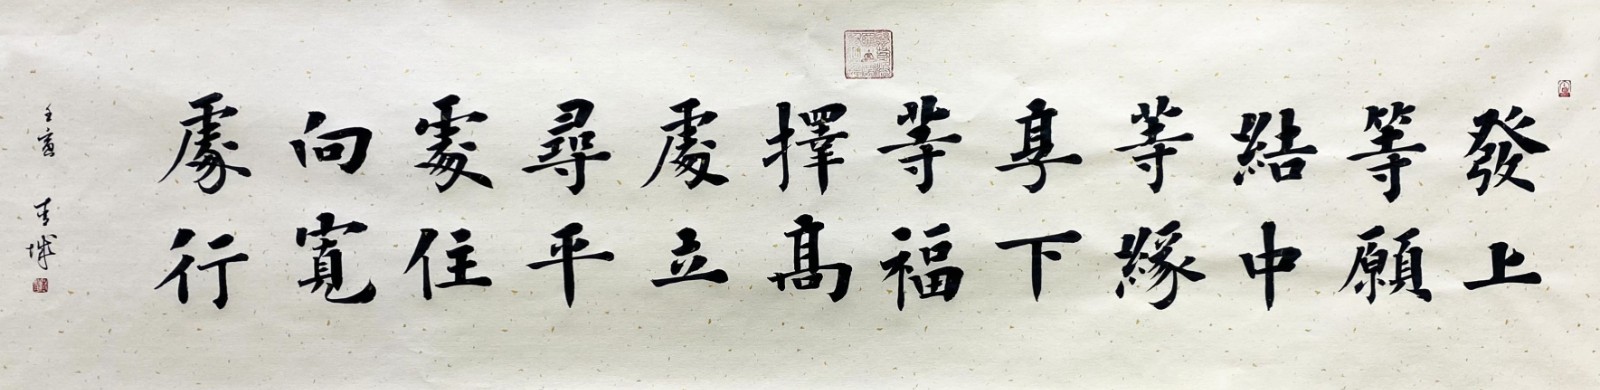 發上
等願
結中
等緣
享下
等福
擇高
處立
尋平
處住
向寬
處行
壬寅